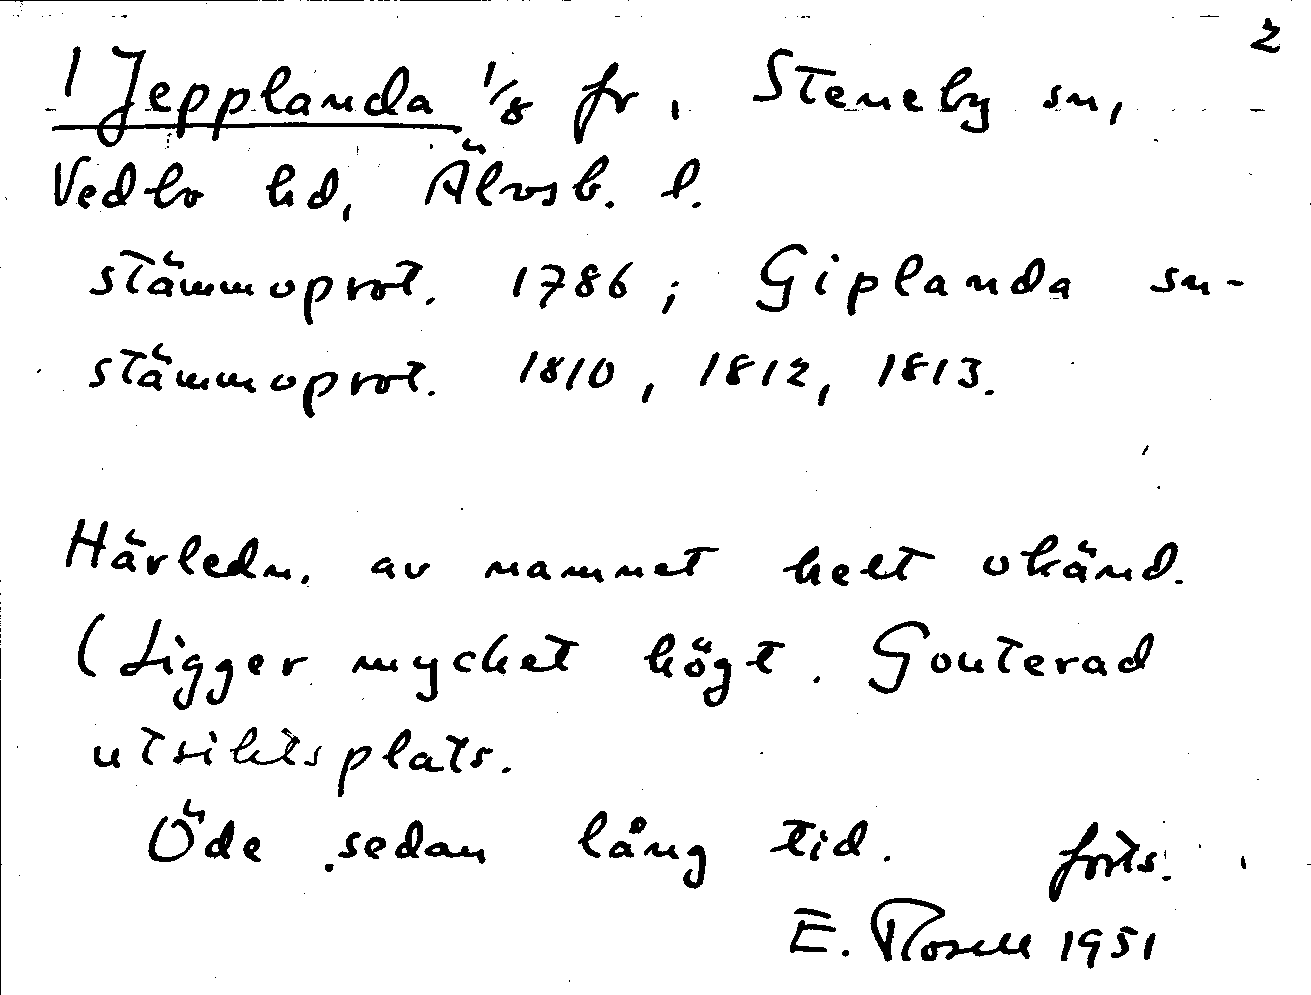 2
1 Jepplanda 1/8 fr, Steneby sn,
Vedbo hd, Älvsb. l.
stämmoprot. 1786; Giplanda sn-
stämmoprot. 1810, 1812, 1813.
Härledn. av namnet helt okänd.
(Ligger mycket högt. Gouterad
utsiktsplats.
Öde sedan lång tid. forts.
E. Rosell 1951